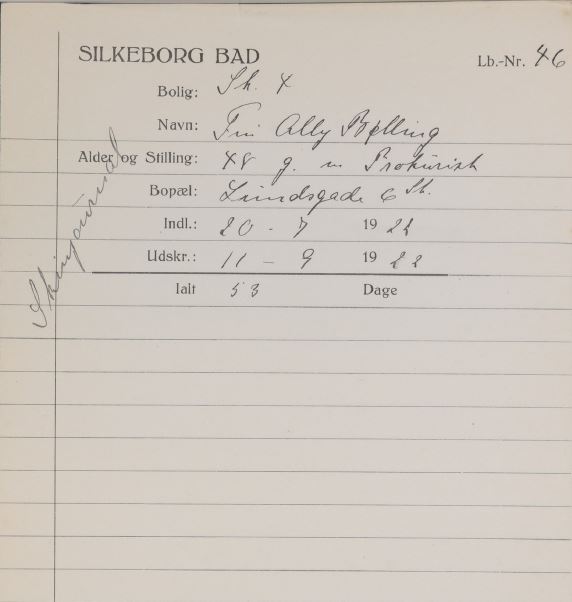 SILKEBORG BAD
Lb.-Nr. 46
Bolig: Sh. 4
Navn: Fru Ally Bølling
Alder og Stilling: 48 g. m Prokurist
Bopæl: Lundsgade 6 St.
Indl.: 20 - 7 1922
Udskr.: 11 - 9 1922
Ialt 53 Dage